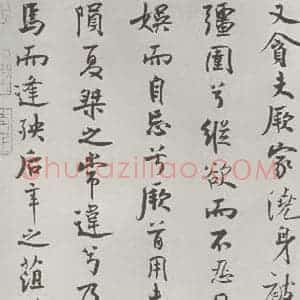 又貪夫厥家澆身被
彊圉兮縱欲而不忍
娛而自忘兮厥首用夫
隕夏桀之常違兮乃
焉而逢殃后辛之菹
Shufaziliao.COM